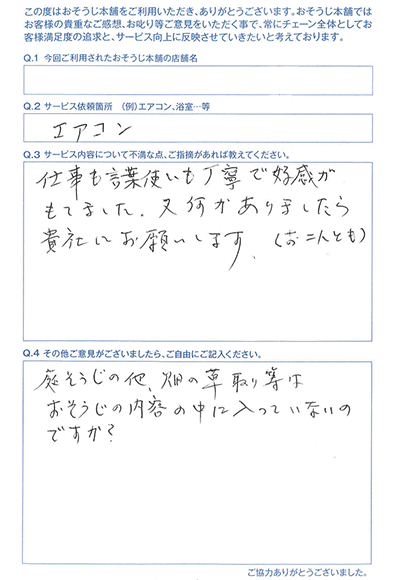 この度はおそうじ本舗をご利用いただき、ありがとうございます。おそうじ本舗では
お客様の貴重なご感想、お叱り等ご意見をいただく事で、常にチェーン全体としてお
客様満足度の追求と、サービス向上に反映させていきたいと考えております。
Q.1 今回ご利用されたおそうじ本舗の店舗名
Q.2 サービス依頼箇所 （例）エアコン、浴室…等
エアコン
Q.3 サービス内容について不満な点、ご指摘があれば教えてください。
仕事も言葉使いも丁寧で好感が
もてました。又何かありましたら
貴社にお願いします。
Q.4 その他ご意見がございましたら、ご自由にご記入ください。
庭そうじの他、畑の草取り等は
おそうじの内容の中に入っていないの
ですか？
ご協力ありがとうございました。